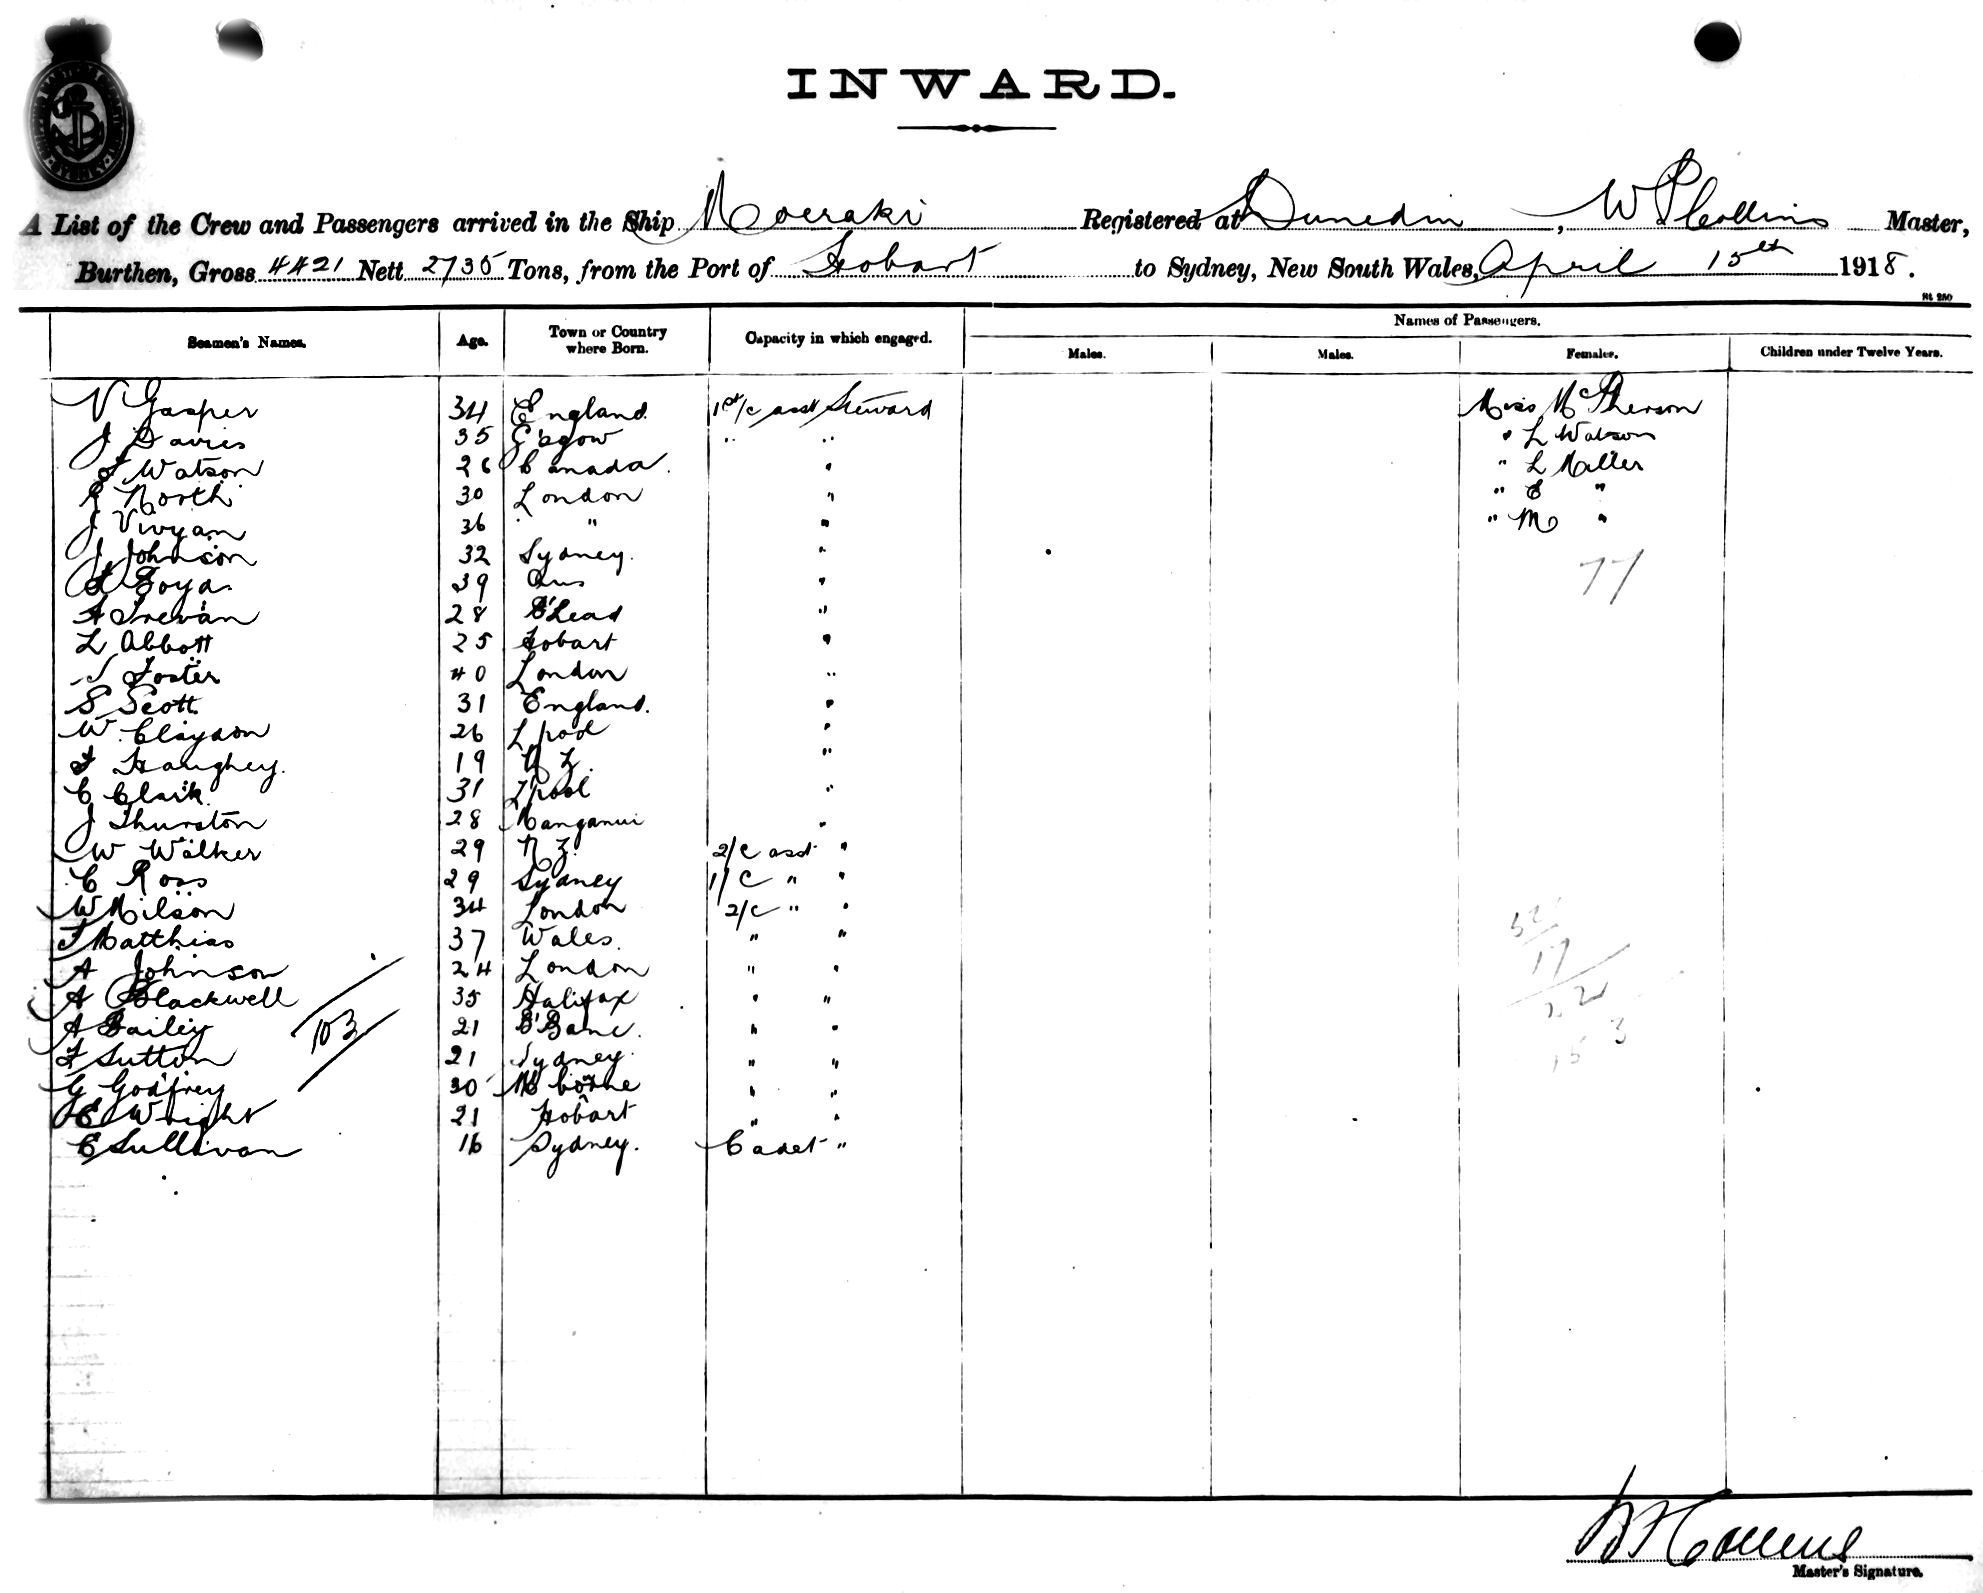 INWARD.
A List of the Crew and Passengers arrived in the Ship Moeraki Registered at Dunedin, W P Collins Master,
Burthen, Gross 4421 Nett 2735 Tons, from the Port of Hobart to Sydney, New South Wales, April 15th 1918.
St. 250
Names of Passengers.
Seamen's Names. Age. Town or Country where Born. Capacity in which engaged. Males. Males. Females. Children under Twelve Years.
V Gasper 34 England 1st/c asst Steward Miss McPherson
J Davies 35 G'sgow " " " L Watson
Watson 26 Canada. " " L Miller
R North 30 London " " E "
J Vivyan 36 " " " M "
J Johnson 32 Sydney. "
39 Aus " 77
A Trevan 28 B'Lead "
L Abbott 25 Hobart "
J Foster 40 London "
S Scott 31 England. "
W. Claydon 26 L'pool "
F Haughey. 19 N Z. "
C Clark. 31 L'pool "
J Thurston 28 Manganui "
W Walker 29 N Z. 2/c asst "
C Ross 29 Sydney 1/C " "
W Wilson 34 London 2/c " "
J Matthias 37 Wales. " "
A Johnson 24 London " "
A Blackwell 35 Halifax " "
A Bailey 103 21 B'Bane. " "
F Sutton 21 Sydney. " "
G Godfrey 30 M'borne " "
E Wright 21 Hobart " "
C Sullivan 16 Sydney. Cadet "
17
22
15 3
W P Collins
Master's Signature.